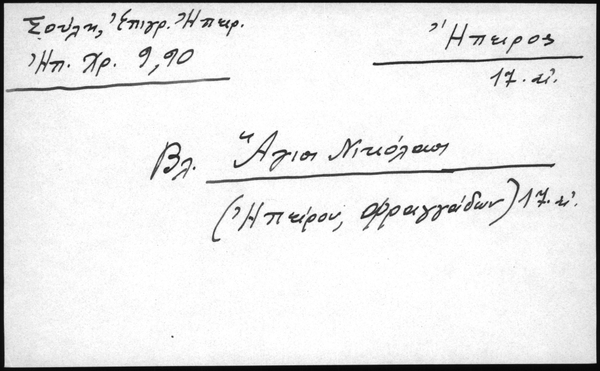 Σούλη, Ἐπιγρ. Ἠπειρ.
Ἠπ. Χρ. 9, 90
Ἤπειρος
17. αἰ.
Βλ. Ἅγιοι Νικόλαοι
(Ἠπείρου, Φραγγάδων) 17. αἰ.